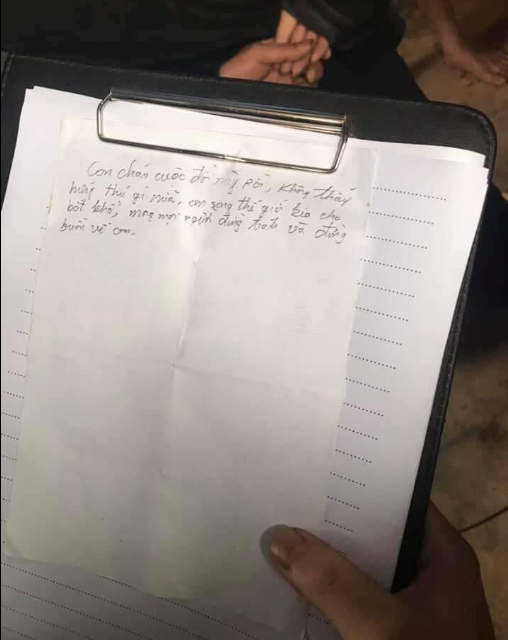 Con chán cuộc đời này rồi, không thấy
hứng thú gì nữa, con sang thế giới kia cho
bớt khổ, mong mọi người đừng và đừng
buồn về con.